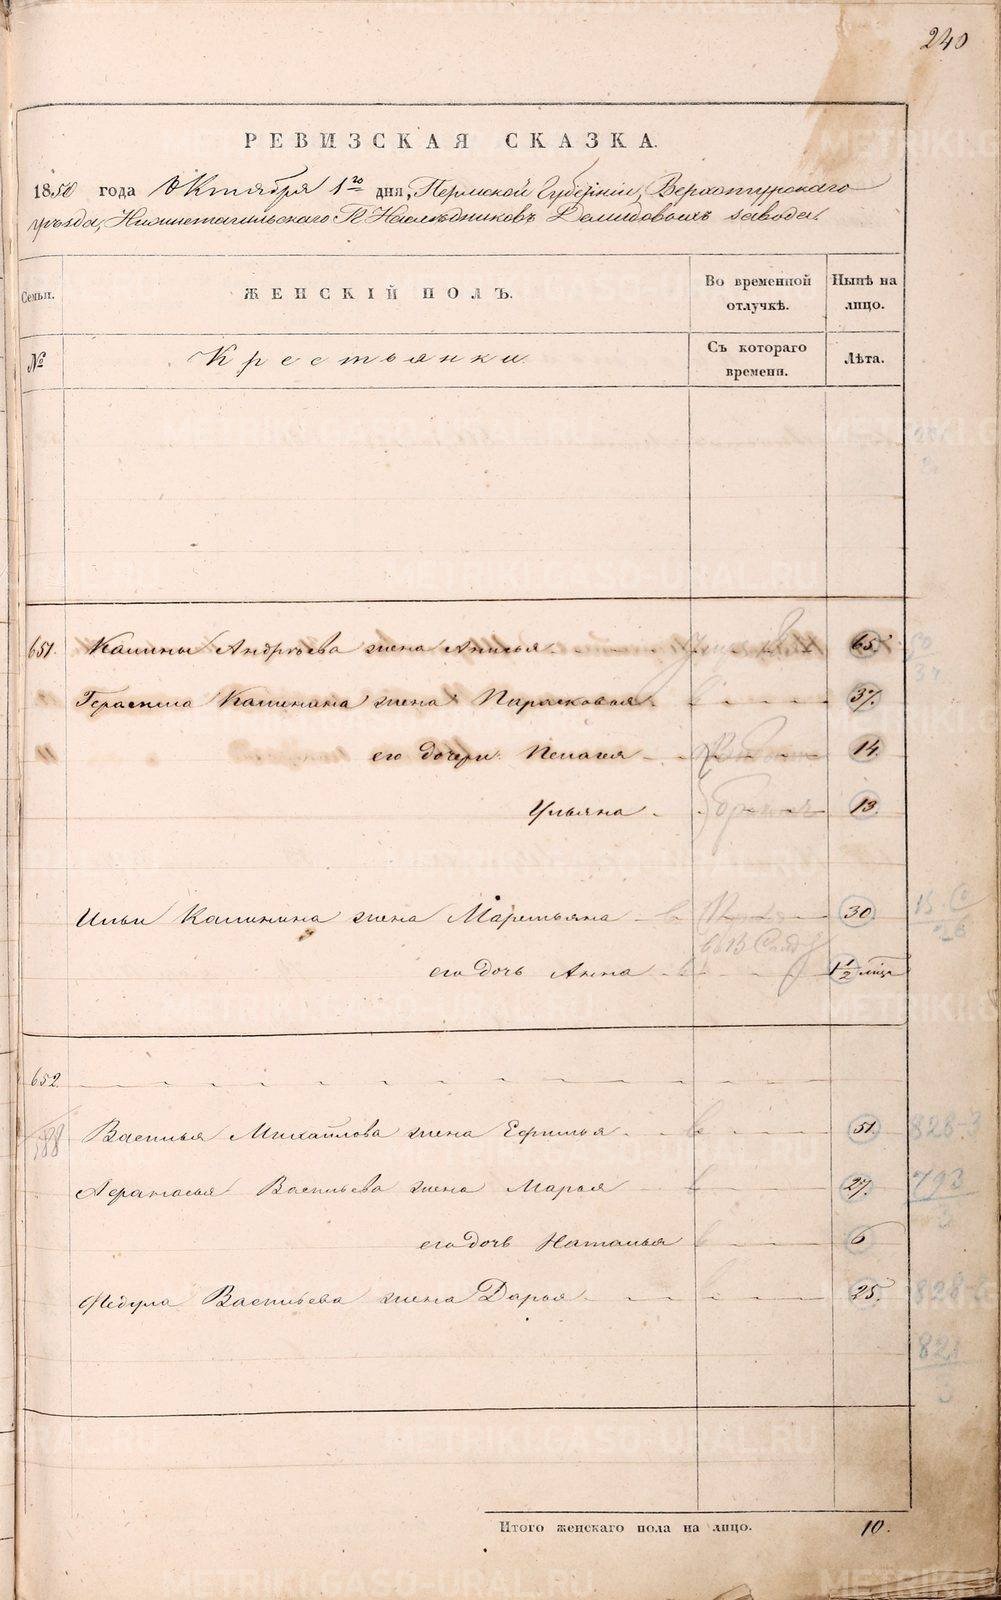 240
РЕВИЗСКАЯ СКАЗКА.
1850 года Октября 1го дня, Пермской Губерніи, Верхотурскаго
уѣзда, Нижнетагильскаго Г. Наслѣдниковъ Демидовыхъ завода.
Семьи. ЖЕНСКІЙ ПОЛЪ. Во временной отлучкѣ. Нынѣ на лицо.
№ Крестьянки. Съ котораго времени. Лѣта.
651. Калины Андрѣева жена Анисья 65.
Герасима Калинина жена Парасковья 37.
его дочери: Пелагея 14.
Ульяна 13.
Ильи Калинина жена Маремьяна 30.
его дочь Анна 1 1/2 мѣс
652.
Василья Михайлова жена Ефимья 51. 828.3
Афанасья Васильева жена Марья 27. 793
3
его дочь Наталья 6
Федула Васильева жена Дарья 25. 828
821
3
Итого женскаго пола на лицо. 10.
METRIKI.GASO-URAL.RU